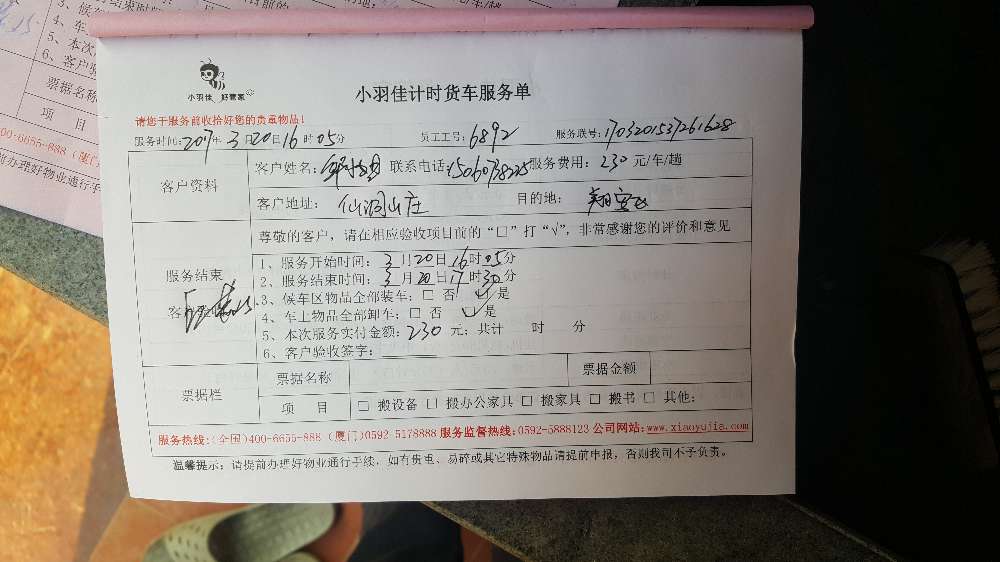 小羽佳 好管家
小羽佳计时货车服务单
请您于服务前收拾好您的贵重物品！
服务时间：2017年 3月20日16时05分 员工工号：6892 服务联号：1703201537261628
客户资料
客户姓名： 联系电话：15060738225 服务费用：230元/车/趟
客户地址： 仙洞山庄 目的地：
尊敬的客户，请在相应验收项目前的“□”打“√”，非常感谢您的评价和意见
服务结束
1、服务开始时间：3月20日16时05分
2、服务结束时间：3月20日17时30分
3、候车区物品全部装车：□ 否 √ 是
4、车上物品全部卸车：□ 否 √ 是
5、本次服务实付金额：230元；共计 时 分
6、客户验收签字：
票据栏
票据名称 票据金额
项 目 □ 搬设备 □ 搬办公家具 □ 搬家具 □ 搬书 □ 其他：
服务热线：(全国)400-6655-888 (厦门)0592-5178888 服务监督热线：0592-5888123 公司网站：www.xiaoyujia.com
温馨提示：请提前办理好物业通行手续，如有贵重、易碎或其它特殊物品请提前申报，否则我司不予负责。